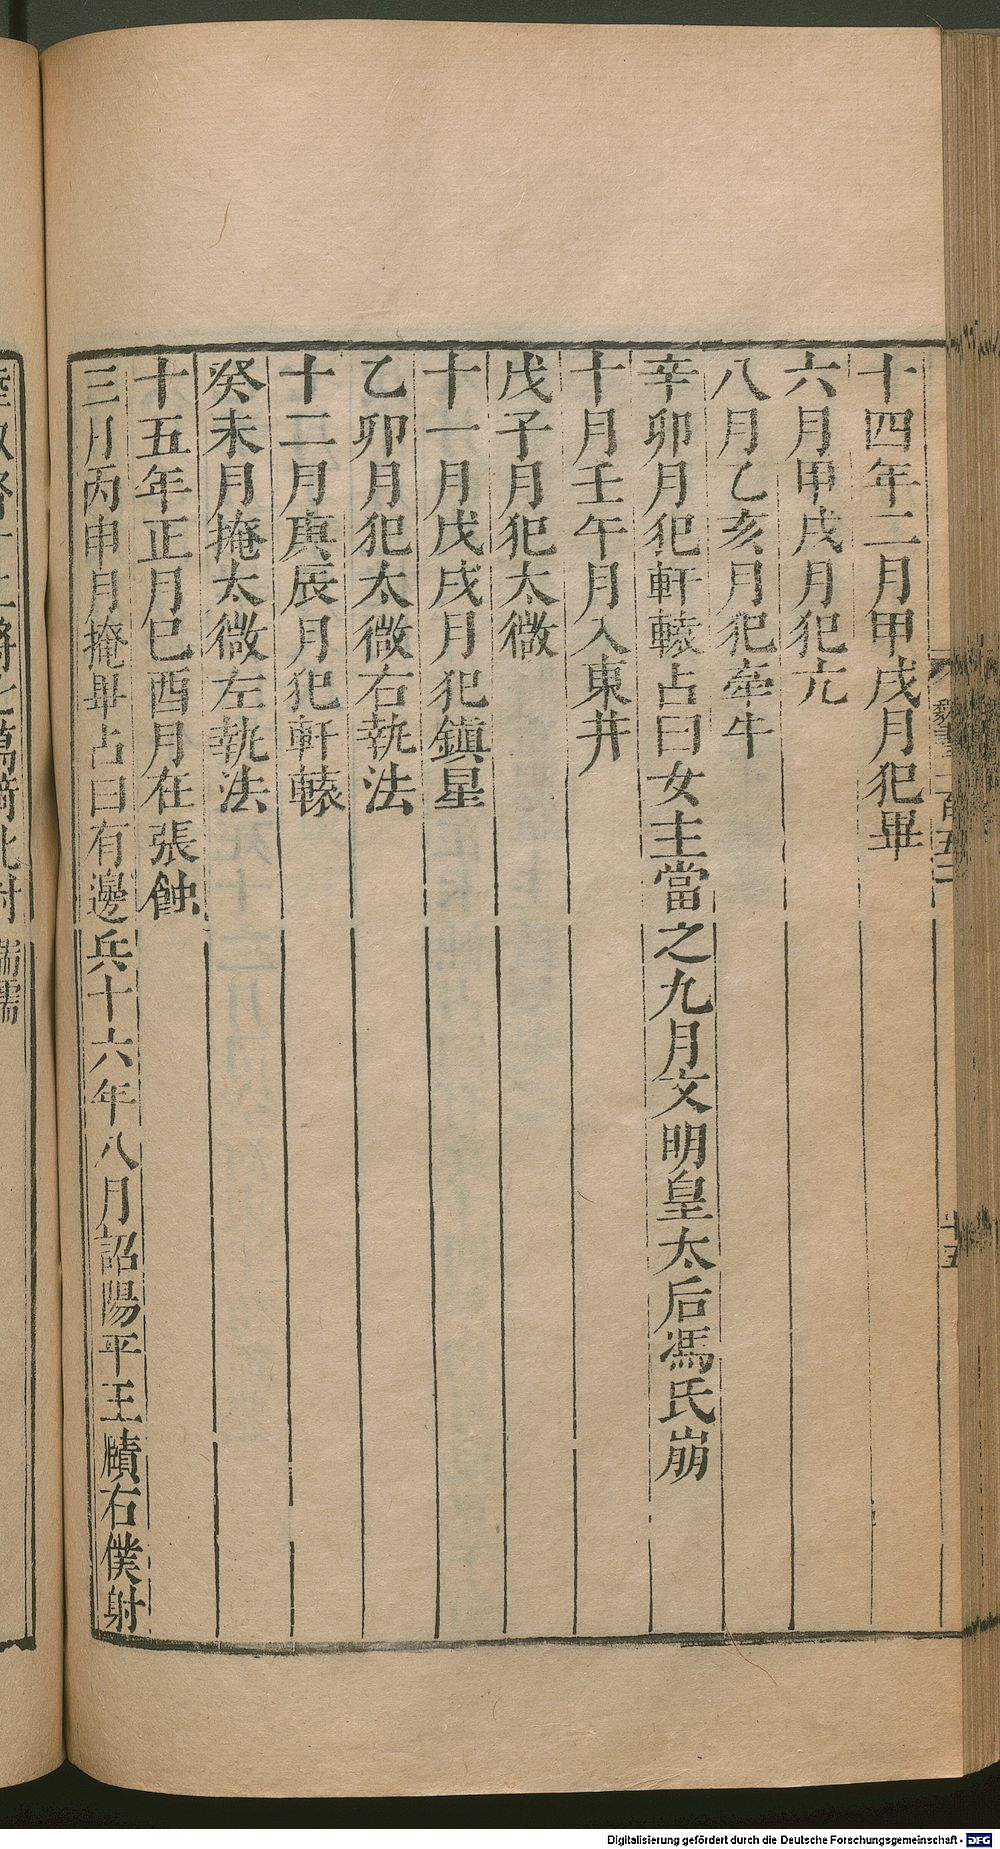 十四年二月甲戌月犯畢
六月甲戌月犯亢
八月乙亥月犯牽牛
辛卯月犯軒轅占曰女主當之九月文明皇太后馮氏崩
十月壬午月入東井
戊子月犯太微
十一月戊戌月犯鎮星
乙卯月犯太微右執法
十二月庚辰月犯軒轅
癸未月掩太微左執法
十五年正月己酉月在張蝕
三月丙申月掩畢占曰有邊兵十六年八月詔陽平王頤右僕射
Digitalisierung gefördert durch die Deutsche Forschungsgemeinschaft - DFG